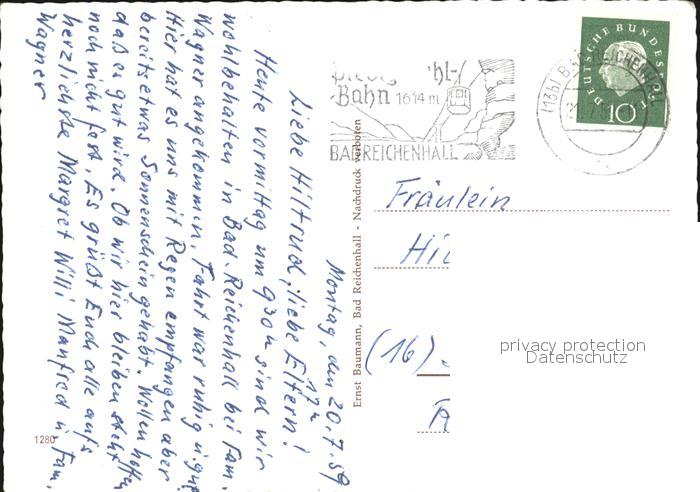 Montag, den 20.7.59
17 u
Liebe Hiltrud, liebe Eltern!
Heute vormittag um 9 30 u sind wir
wohlbehalten in Bad-Reichenhall bei Fam.
Wagner angekommen, Fahrt war ruhig u. gut
Hier hat es uns mit Regen empfangen aber
bereits etwas Sonnenschein gehabt. Wollen hoffen
daß es gut wird. Ob wir hier bleiben steht
noch nicht fest. Es grüßt Euch alle aufs
herzlichste Margret Willi Manfred u. Fam.
Wagner
1280
Ernst Baumann, Bad Reichenhall - Nachdruck verboten
Bahn 1614 m
BAD REICHENHALL
(13b) BAD REICHENHALL
DEUTSCHE BUNDESPOST
10
Fräulein
Hil
(16)
privacy protection
Datenschutz